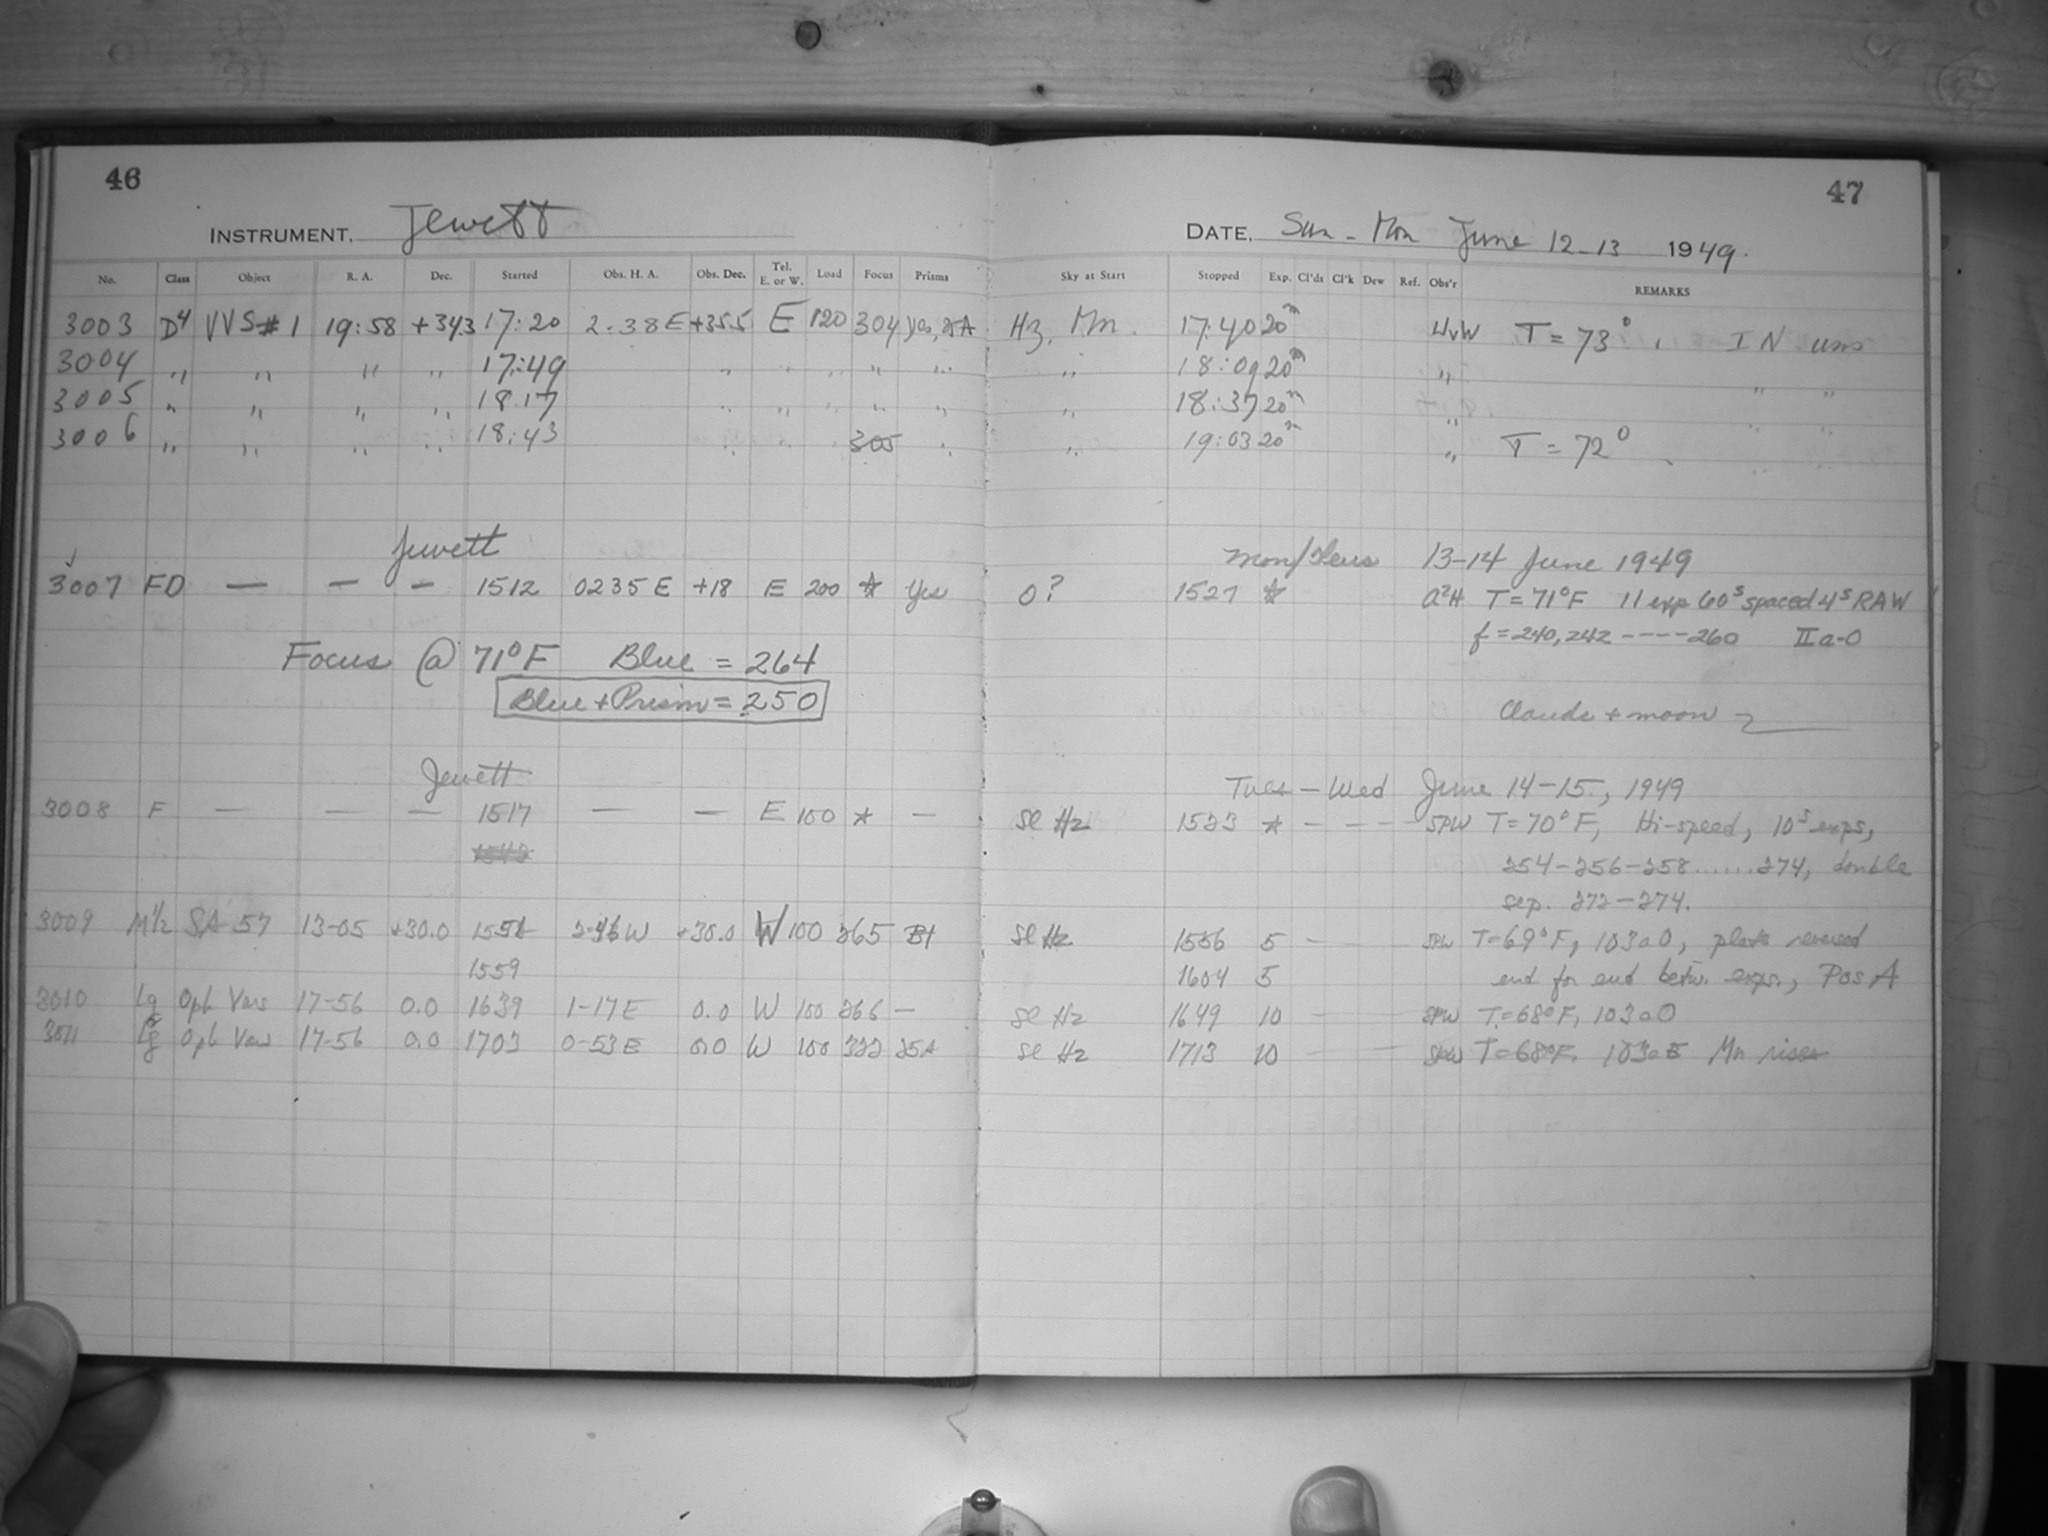 46
47
INSTRUMENT. Jewett DATE. Sun - Mon June 12-13 1949.
No. Class Object R. A. Dec. Started Obs. H. A. Obs. Dec. Tel. E. or W. Load Focus Prisms Sky at Start Stopped Exp. Cl'ds Cl'k Dew Ref. Obs'r REMARKS
3003 D4 VVS#1 19:58 +343 17:20 2:38E +355 E 120 304 yes, Hz, Mn. 17:40 20m T=73° IN
3004 " " " " 17:49 " " " " " " 18:09 20m " " "
3005 " " " " 18:17 " " " " " " 18:37 20m " " "
3006 " " " " 18:43 " " " 305 " " 19:03 20m " T=72° " "
Jewett Mon/Tues 13-14 June 1949
3007 FD — — — 1512 0235 E +18 E 200 * Yes 0? 1527 * T=71°F 11 exp 60s spaced 4s RAW
f=240,242 ----260 IIa-O
Focus @ 71°F Blue = 264
Blue + Prism = 250
Clouds + moon
Jewett Tues - Wed June 14-15, 1949
3008 F — — — 1517 — — E 100 * — Sl Hz 1523 * — — — SPW T=70°F, Hi-speed, 10s exps,
254-256-258......274, double
sep. 272-274.
3009 M1/2 SA 57 13-05 +30.0 W +30.0 W 100 265 Sl Hz 1556 5 — SPW T=69°F, 103aO, plate reversed
1559 1604 5 end for end betw. exps., Pos A
3010 Lg Oph Vars 17-56 0.0 1639 1-17E 0.0 W 100 266 — Sl Hz 1649 10 SPW T=68°F, 103aO
3011 Lg Oph Vars 17-56 0.0 1703 0-53E 0.0 W 100 Sl Hz 1713 10 SPW T=68°F, 103aE Mn rises